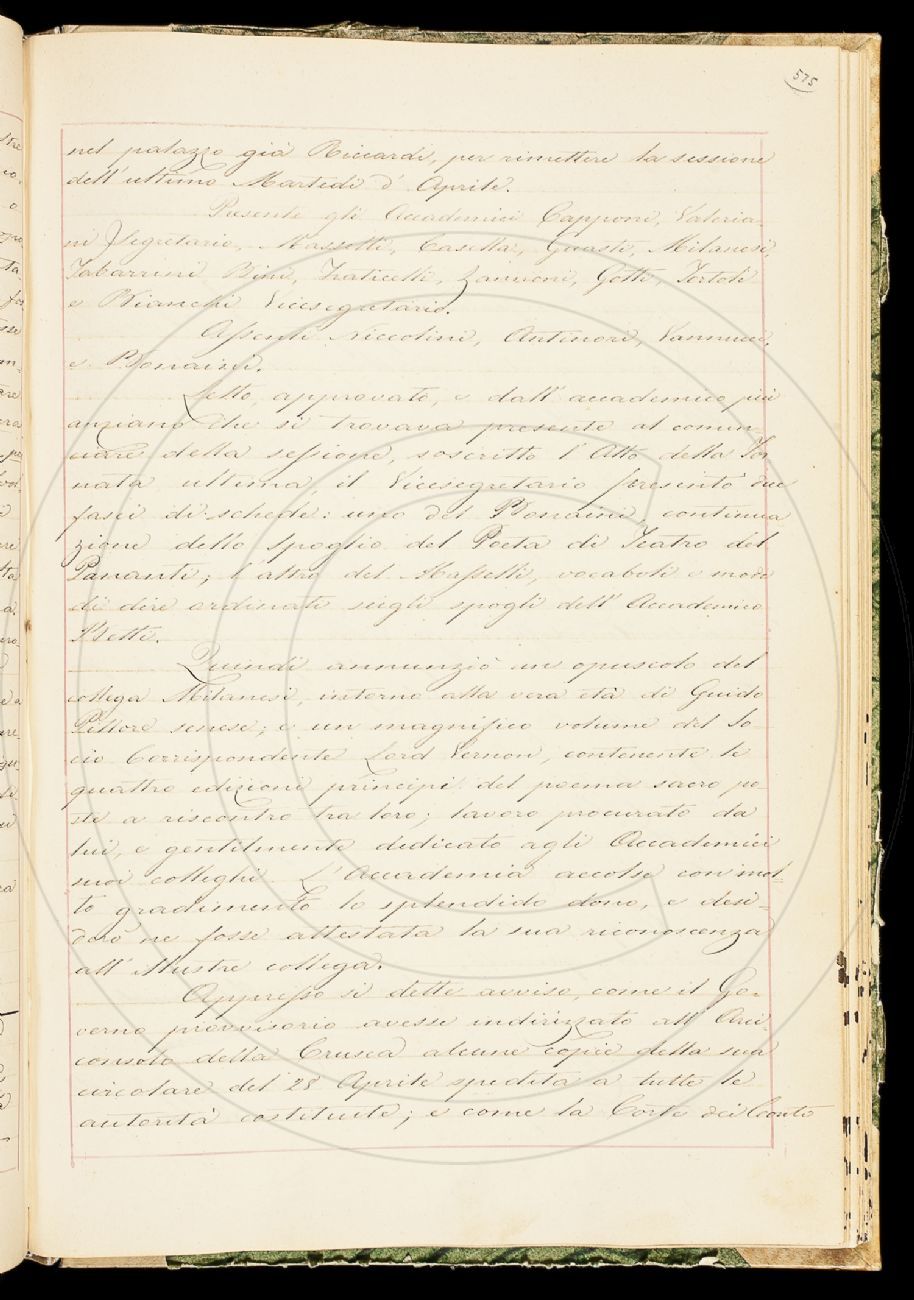 575
nel palazzo già Riccardi, per rimettere la sessione
dell'ultimo Martedì d'Aprile.
Presente gli Accademici Capponi, Valeria-
ni Segretario, Masselli, Casella, Guasti, Milanesi,
Tabarrini Bini, Fraticelli, Zannoni, Gotti, Tortoli
e Bianchi Vicesegretario.
Assenti Niccolini, Antinori, Vannucci,
e Bonaini.
Letto, approvato, e dall'accademico più
anziano che si trovava presente al comin-
ciare della sessione, soscritto l'Atto della Tor
nata ultima, il Vicesegretario presentò due
fasci di schede: uno del Bonaini, continua
zione dello spoglio del Poeta di Teatro del
Pananti; l'altro del Masselli, vocaboli e modi
di dire ordinati sugli spogli dell'Accademico
Betti.
Quindi annunziò un opuscolo del
collega Milanesi, intorno alla vera età di Guido
Pittore senese; e un magnifico volume del So-
cio Corrispondente Lord Vernon, contenente le
quattro edizioni principi del poema sacro, po
ste a riscontro tra loro; lavoro procurato da
lui, e gentilmente dedicato agli Accademici
suoi colleghi. L'Accademia accolse con mol-
to gradimento lo splendido dono, e desi-
derò ne fosse attestata la sua riconoscenza
all'illustre collega.
Appresso si dette avviso, come il Go-
verno provvisorio avesse indirizzato all'Arci-
consolo della Crusca alcune copie della sua
circolare del 28 Aprile spedita a tutte le
autorità costituite; e come la Corte dei Conti